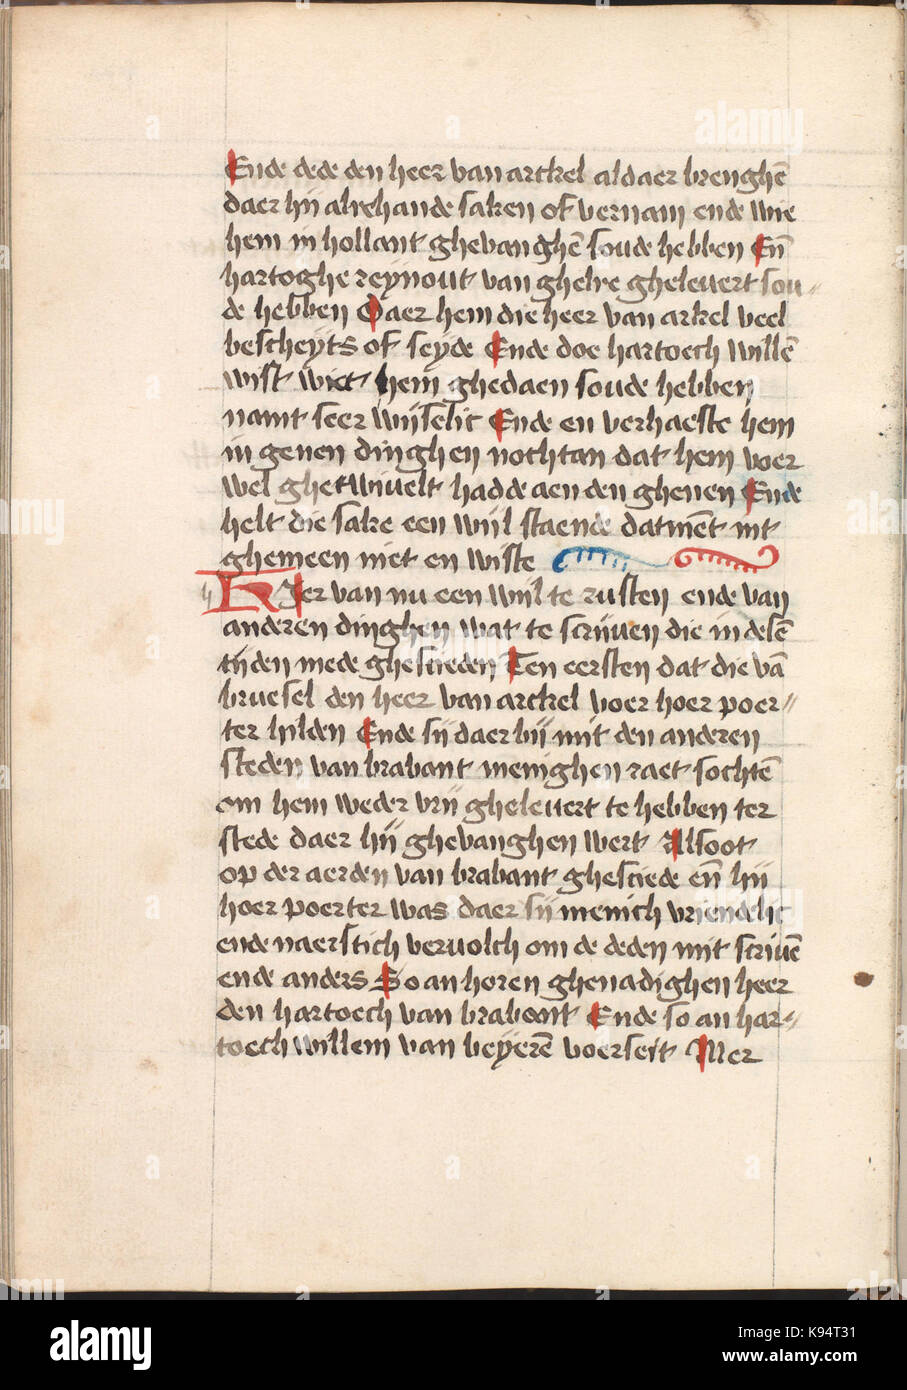 Ende dede den heer van arckel aldaer brenghē
daer hij alrehande saken of vernam ende wie
hem in hollant ghevanghē soude hebben En̄
hartoghe reynout van ghelre ghelevert sou-
de hebben Daer hem die heer van arkel veel
bescheyts of seyde Ende doe hartoech willē
wist wiet hem ghedaen soude hebben
namt seer wijselic Ende en verhaeste hem
in genen dinghen nochtan dat hem voer
wel ghetwivelt hadde aen den ghenen Ende
helt die sake een wijl staende datmēt int
ghemeen niet en wiste
Hier van nu een wijl te rusten ende van
anderen dinghen wat te scrijven die in desē
tijden mede ghescieden Ten eersten dat die vā
bruesel den heer van arckel voer hoer poer-
ter hilden Ende sij daer bij mit den anderen
steden van brabant menighen raet sochtē
om hem weder vrij ghelevert te hebben ter
stede daer hij ghevanghen wert Alsoot
op der aerden van brabant ghesciede en̄ hij
hoer poerter was daer sij menich vriendelic
ende naerstich vervolch om de deden mit scrivē
ende anders So an horen ghenadighen heer
den hartoech van brabant Ende so an har-
toech willem van beyerē voerseit Mer
alamy
Image ID: K94T31
www.alamy.com